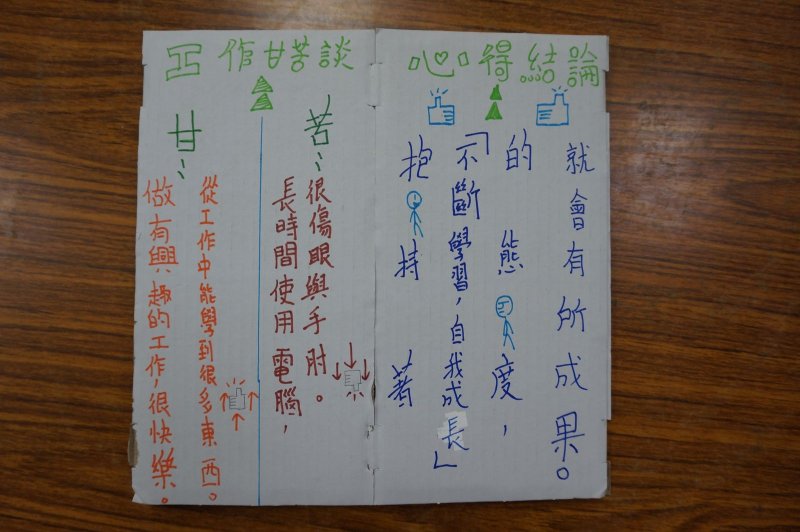 工作甘苦談
甘：
做有興趣的工作，很快樂。
從工作中能學到很多東西。
苦：
長時間使用電腦，
很傷眼與手肘。
心得結論
抱持著
「不斷學習，自我成長」
的態度，
就會有所成果。